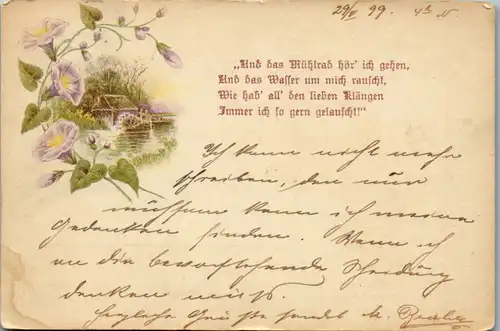 29/V 99. 4 h N
„Und das Mühlrad hör' ich gehen,
Und das Wasser um mich rauscht,
Wie hab' all' den lieben Klängen
Immer ich so gern gelauscht!"
Ich kann nicht mehr
schreiben, denn nur
mühsam kann ich meine
Gedanken finden. Wenn ich
an die bevorstehende Scheidung
denken muß.
Herzliche Grüße sendet M.